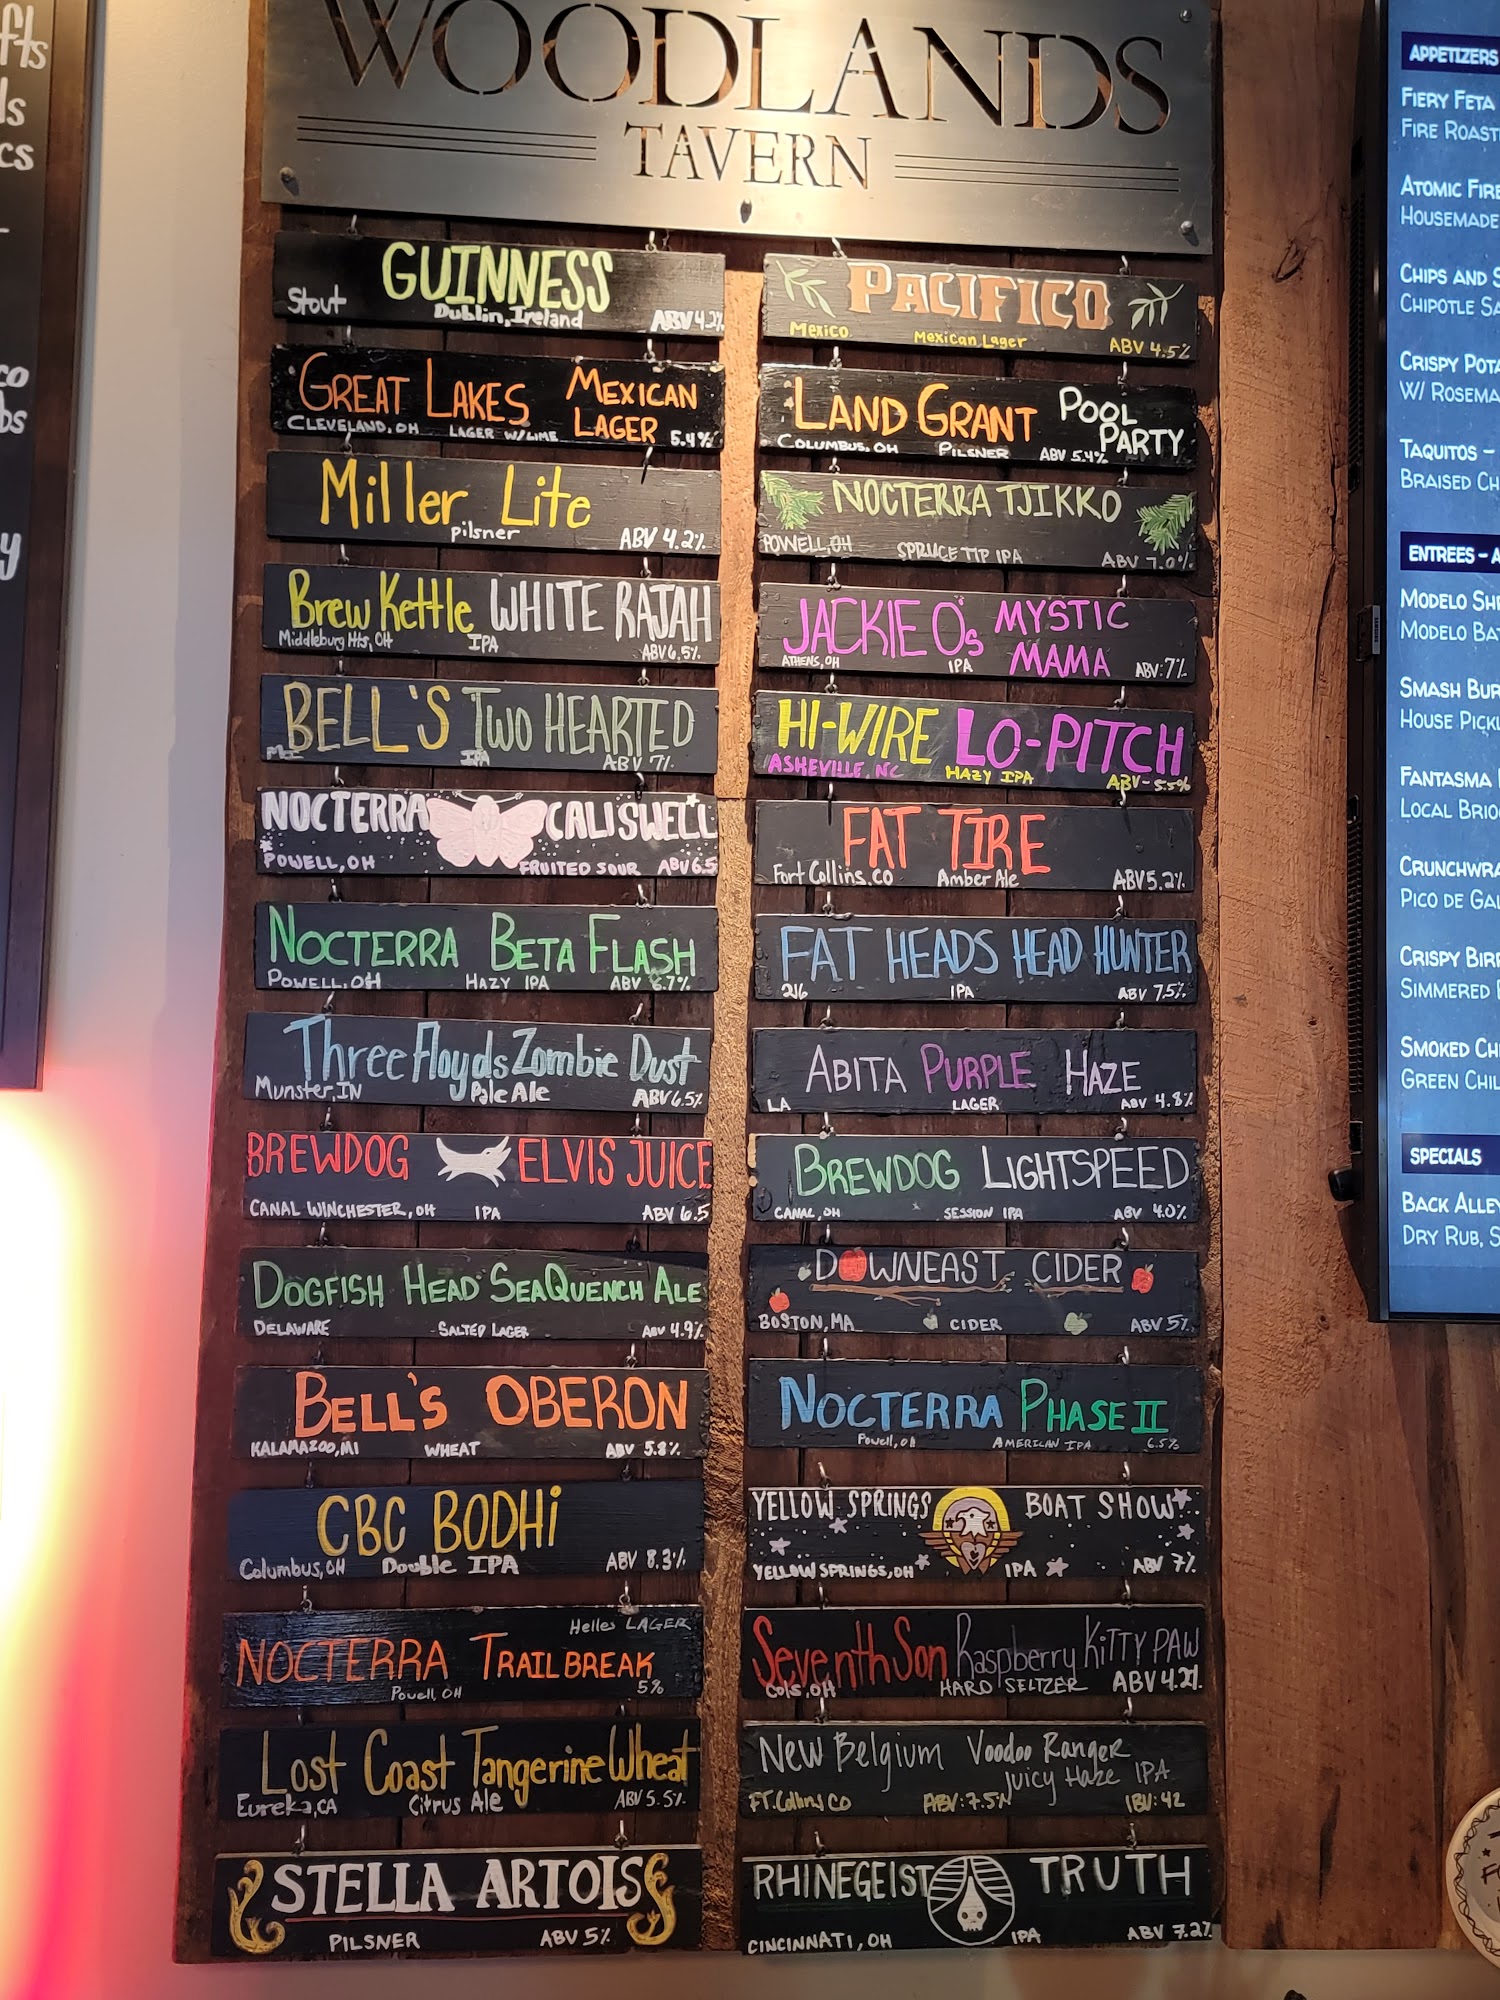 WOODLANDS
TAVERN
GUINNESS
Stout Dublin, Ireland ABV 4.2%
GREAT LAKES MEXICAN LAGER
CLEVELAND, OH LAGER W/LIME 5.4%
Miller Lite
pilsner ABV 4.2%
Brew Kettle WHITE RAJAH
Middleburg Hts, OH IPA ABV 6.5%
BELL'S TWO HEARTED
MI IPA ABV 7%
NOCTERRA CALISWELL
POWELL, OH FRUITED SOUR ABV 6.5
NOCTERRA BETA FLASH
POWELL, OH HAZY IPA ABV 6.7%
Three Floyds Zombie Dust
Munster, IN Pale Ale ABV 6.5%
BREWDOG ELVIS JUICE
CANAL WINCHESTER, OH IPA ABV 6.5
DOGFISH HEAD SEAQUENCH ALE
DELAWARE SALTED LAGER ABV 4.9%
BELL'S OBERON
KALAMAZOO, MI WHEAT ABV 5.8%
CBC BODHi
Columbus, OH Double IPA ABV 8.3%
Helles LAGER
NOCTERRA TRAILBREAK
Powell, OH 5%
Lost Coast Tangerine Wheat
Eureka, CA Citrus Ale ABV 5.5%
STELLA ARTOIS
PILSNER ABV 5%
PACIFICO
Mexico Mexican Lager ABV 4.5%
LAND GRANT POOL PARTY
COLUMBUS, OH PILSNER ABV 5.4%
NOCTERRA TJIKKO
POWELL, OH SPRUCE TIP IPA ABV 7.0%
JACKIE O's MYSTIC MAMA
ATHENS, OH IPA ABV: 7%
HI-WIRE LO-PITCH
ASHEVILLE, NC HAZY IPA ABV - 5.5%
FAT TIRE
Fort Collins, CO Amber Ale ABV 5.2%
FAT HEADS HEAD HUNTER
216 IPA ABV 7.5%
ABITA PURPLE HAZE
LA LAGER ABV 4.8%
BREWDOG LIGHTSPEED
CANAL, OH SESSION IPA ABV 4.0%
DOWNEAST CIDER
BOSTON, MA CIDER ABV 5%
NOCTERRA PHASE II
Powell, OH AMERICAN IPA 6.5%
YELLOW SPRINGS BOAT SHOW
YELLOW SPRINGS, OH IPA ABV 7%
Seventh Son Raspberry KiTTY PAW
Cols, OH HARD SELTZER ABV 4.2%
New Belgium Voodoo Ranger
Juicy Haze IPA
FT. Collins CO ABV: 7.5% IBU: 42
RHINEGEIST TRUTH
CINCINNATI, OH IPA ABV 7.2%
APPETIZERS
FIERY FETA
FIRE ROAST
ATOMIC FIRE
HOUSEMADE
CHIPS AND S
CHIPOTLE SA
CRISPY POTA
W/ ROSEMA
TAQUITOS -
BRAISED CH
ENTREES - A
MODELO SH
MODELO BAT
SMASH BUR
HOUSE PICKL
FANTASMA
LOCAL BRIO
CRUNCHWRA
PICO DE GAL
CRISPY BIRR
SIMMERED
SMOKED CH
GREEN CHIL
SPECIALS
BACK ALLEY
DRY RUB, S